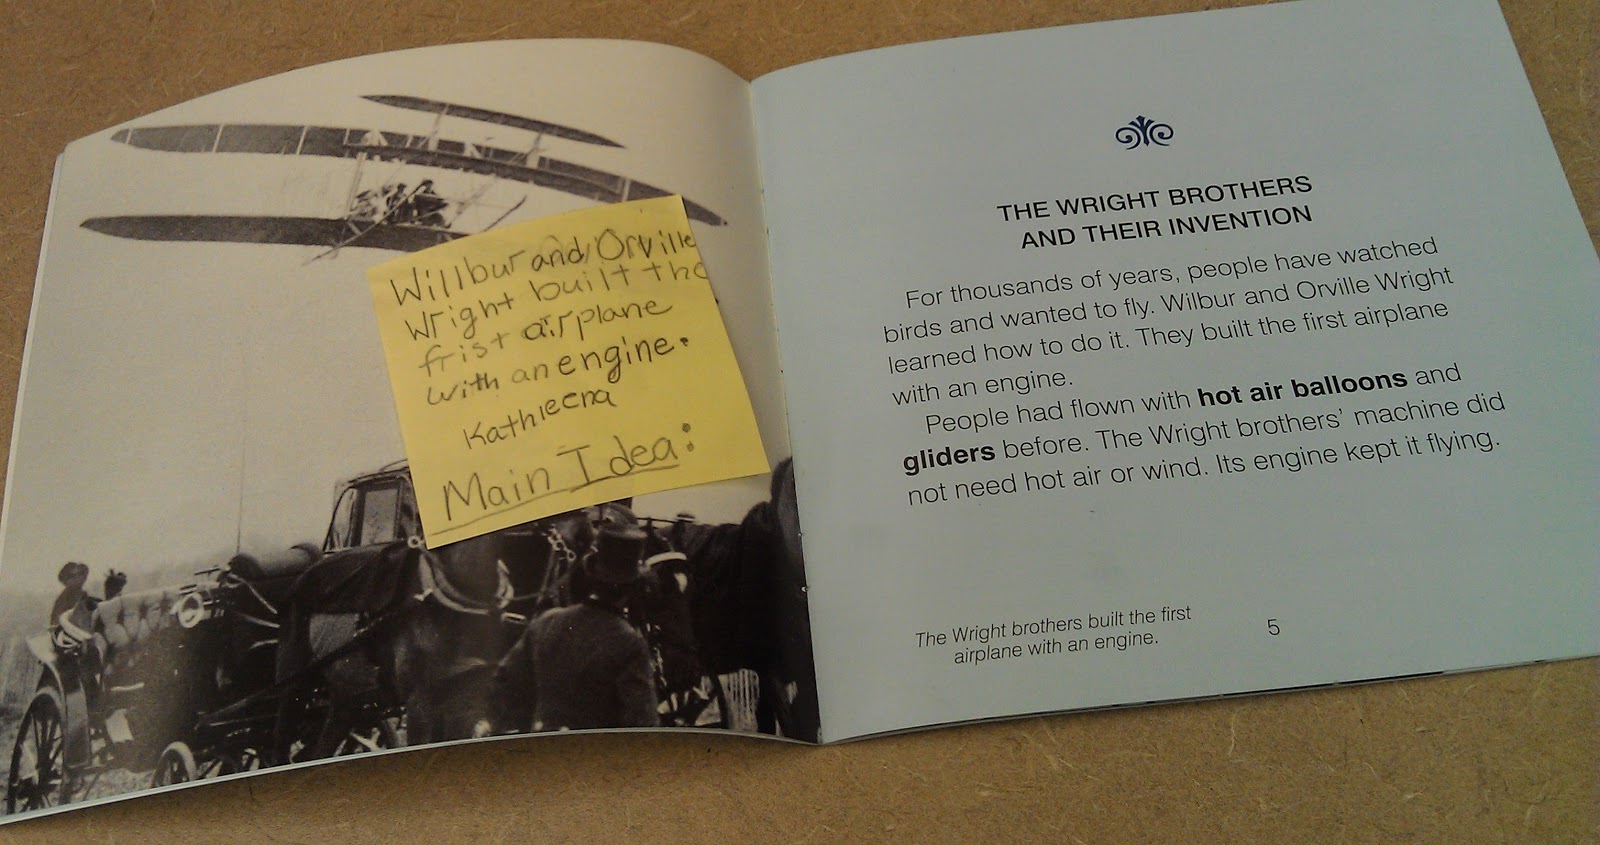 Willbur and Orville
Wright built the
frist airplane
with an engine.
Kathleena
Main Idea:
THE WRIGHT BROTHERS
AND THEIR INVENTION
For thousands of years, people have watched
birds and wanted to fly. Wilbur and Orville Wright
learned how to do it. They built the first airplane
with an engine.
People had flown with hot air balloons and
gliders before. The Wright brothers’ machine did
not need hot air or wind. Its engine kept it flying.
The Wright brothers built the first
airplane with an engine.
5